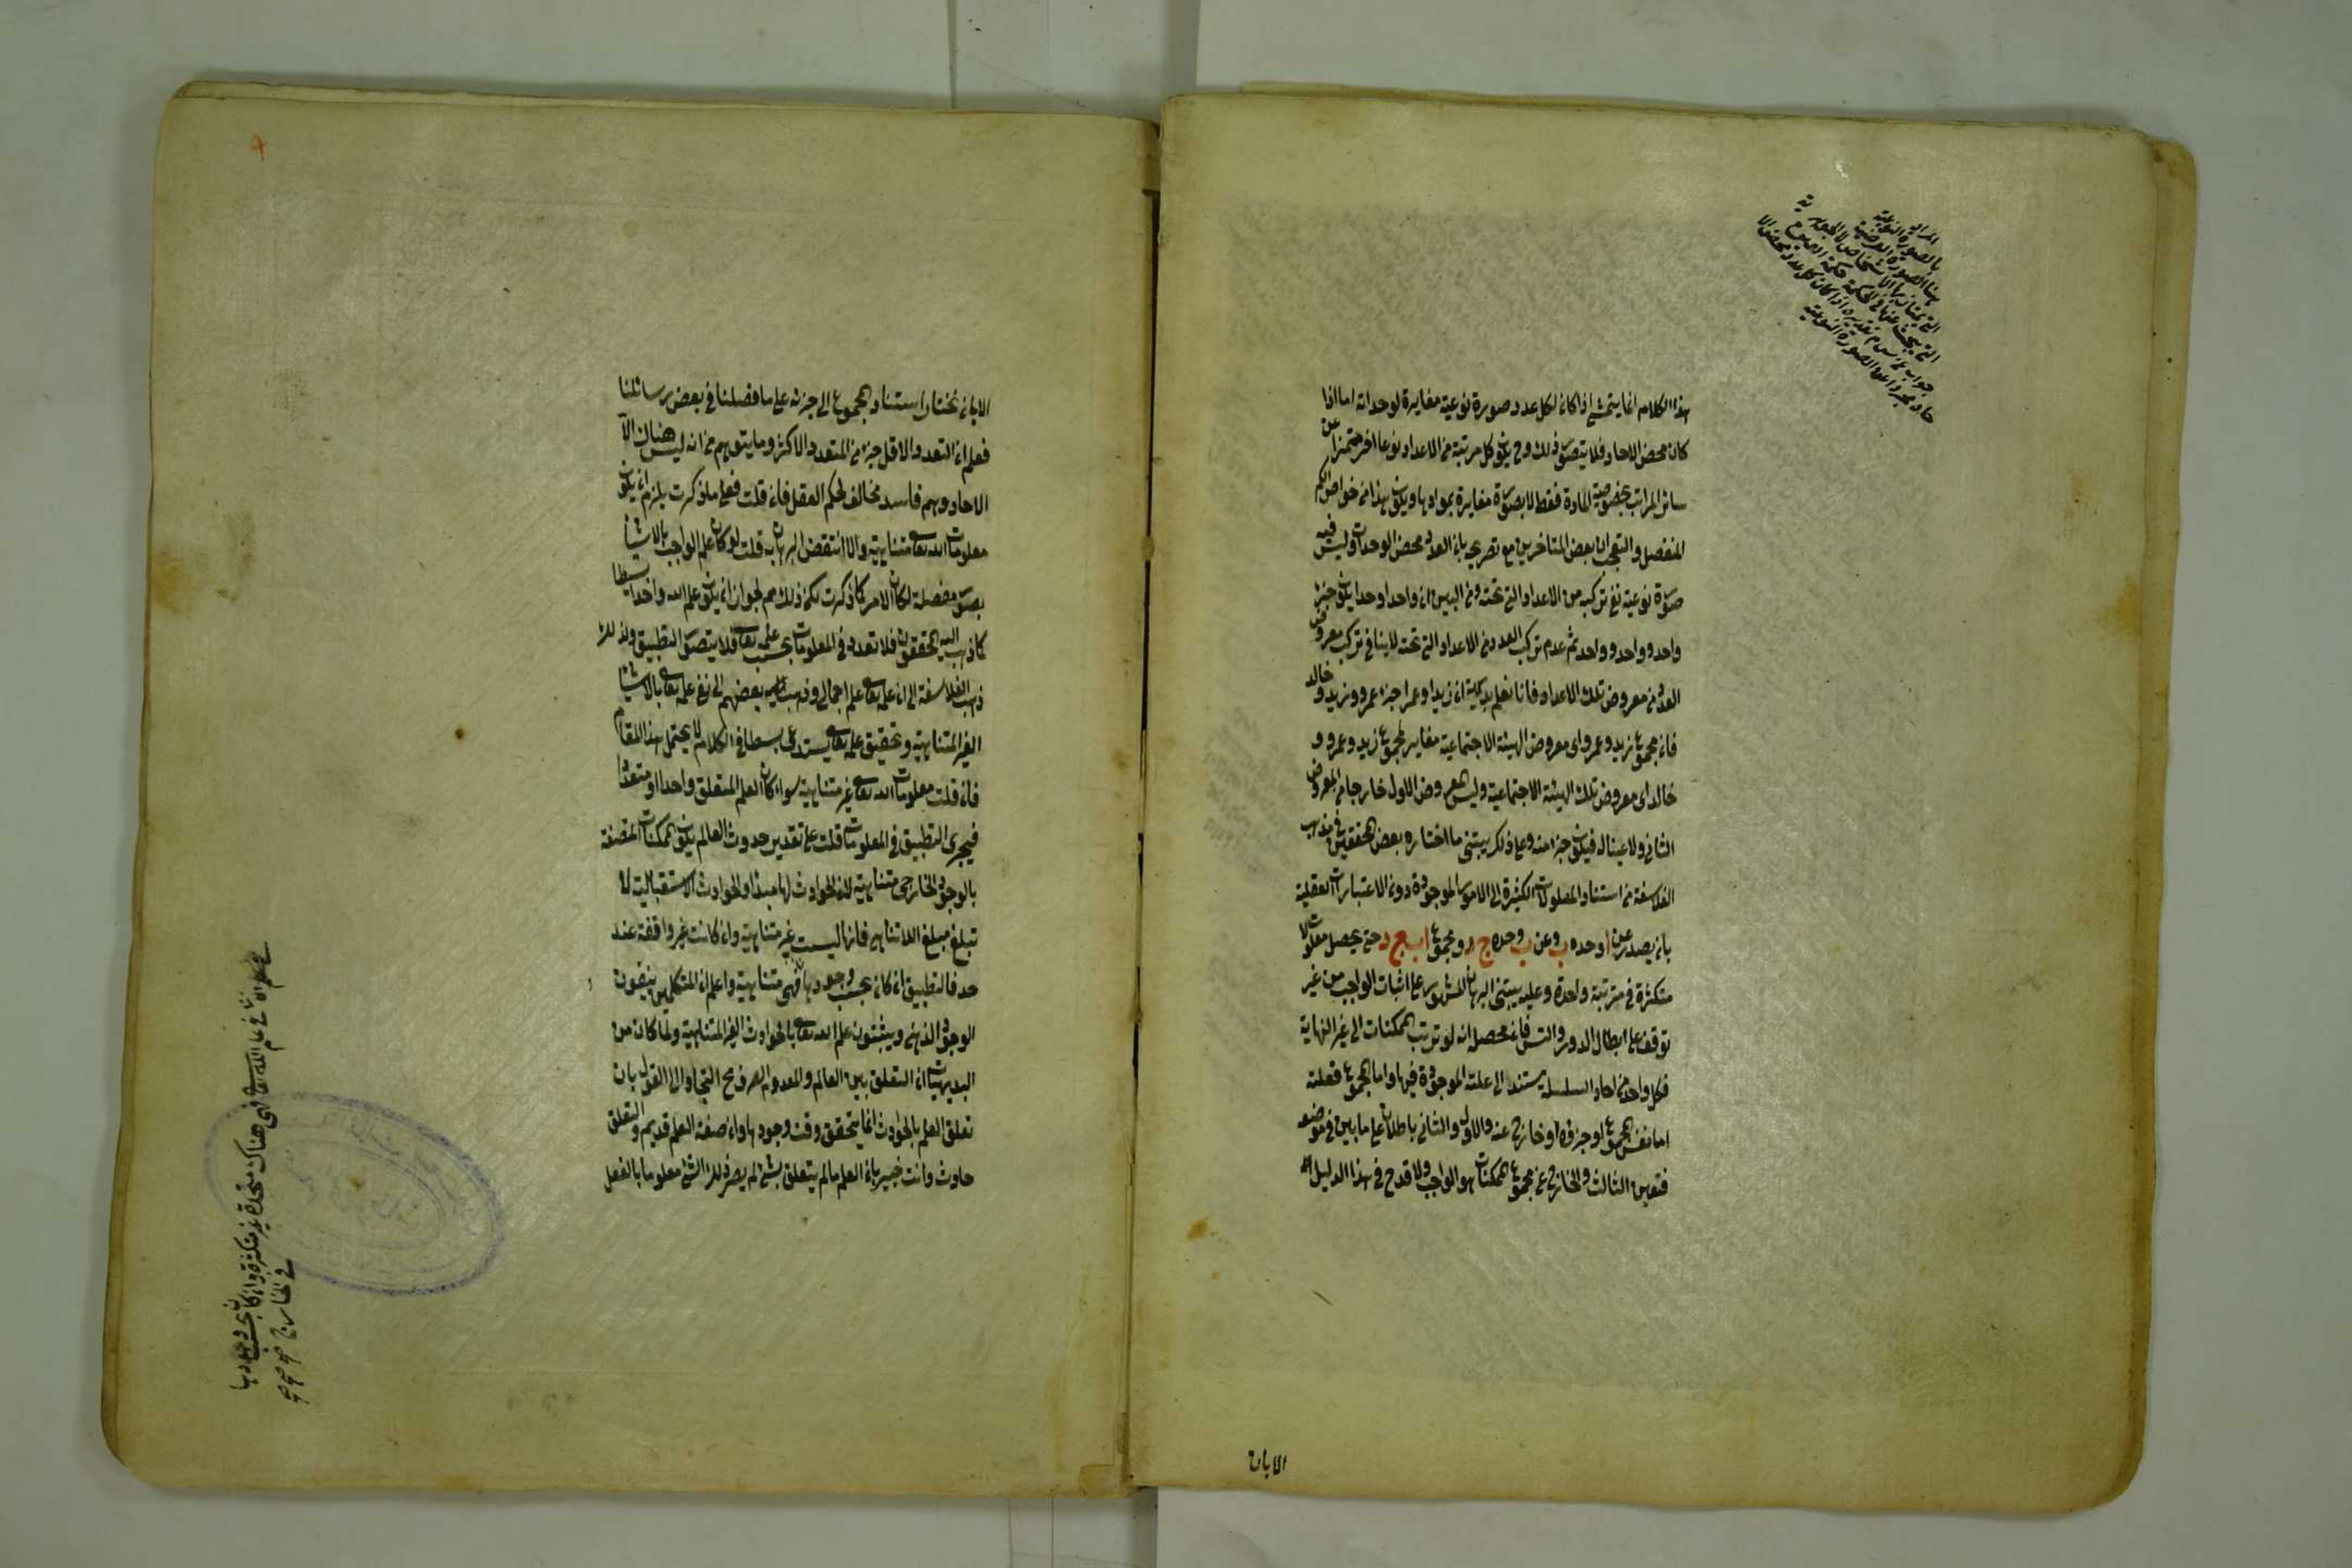 المراد
بالصورة النوعية
هنا الصورة العرضية
التي يمتاز بها الاشخاص لا الجوهرية
التي يبحث عنها في الحكمة
جواب عن سؤال تقديره اذا كان كل عدد محض الا
حاد مجردا عن الصورة النوعية
هذا الكلام انما يتمشى اذا كان لكل عدد صورة نوعية مغايرة لوحداته اما اذا
كان محض الاحاد فلا يتصور ذلك وح يكون كل مرتبة من الاعداد نوعا اخر متميزا عن
سائر المراتب بخصوصية المادة فقط لا بصورة مغايرة لموادها ويكون هذا من خواص الكم
المنفصل والتعجب ان بعض المتاخرين مع تصريحه بان العدد محض الوحدات وليس فيه
صورة نوعية نفى تركبه من الاعداد التي تحته ومن البين ان واحدا وحدا يكون جزء
واحد وواحد وواحد ثم عدم تركب العدد من الاعداد التي تحته لا ينافي تركب معروض
العدد من معروض تلك الاعداد فانا نعلم بديهة ان زيدا وعمرا جزء عمرو وزيد وخالد
فان مجموع زيد وعمرو اى معروض الهيئة الاجتماعية مغاير لمجموع زيد وعمرو و
خالد اى معروض تلك الهيئة الاجتماعية وليس معروض الاول خارجا من المعروض
الثاني ولا عينا له فيكون جزءا منه وعلى ذلك يبتنى ما اختاره بعض المحققين في مذهب
الفلاسفة من استناد المعلولات الكثيرة الى الامور الموجودة دون الاعتبارات العقلية
بان يصدر عن ا وحده ب وعن ب وحده ج ومجموع ا ب ج د حتى يحصل معلولات
متكثرة في مرتبة واحدة وعليه يبتنى البرهان المشهور على اثبات الواجب من غير
توقف على ابطال الدور والتس فان محصله انه لو ترتب الممكنات الى غير النهاية
فكل واحد من احاد السلسلة يستند الى علته الموجودة فيها واما المجموع فعلته
اما نفس المجموع او جزؤه او خارج عنه والاول والثاني باطلان على ما بين في موضعه
فتعين الثالث والخارج عن مجموع الممكنات هو الواجب ولا قدح في هذا الدليل الا
الا بان
الا بان نختار استناد المجموع الى جزئه على ما فصلنا في بعض رسائلنا
فعلم ان التعدد الاقل جزء من المتعدد الاكثر وما يتوهم من انه ليس هناك الا
الاحاد وهم فاسد مخالف لحكم العقل فان قلت فعلى ما ذكرت يلزم ان يكون
معلومات الله تعالى متناهية والا انتقض البرهان به قلت لو كان علم الواجب بالاشياء
بصور مفصلة لكان الامر كما ذكرت لكن ذلك مم لجواز ان يكون علم الله واحدا بسيطا
كما ذهب اليه المحققون فلا تعدد في المعلومات بحسب علمه تعالى فلا يتصور التطبيق ولذلك
ذهب الفلاسفة الى ان علمه تعالى علم اجمالي وذهب بعضهم الى نفى علمه تعالى بالاشياء
الغير المتناهية وتحقيق علمه تعالى يستدعى بسطا في الكلام لا يحتمل هذا المقام
فان قلت معلومات الله تعالى غير متناهية سواء كان العلم المتعلق واحدا او متعددا
فيجرى التطبيق في المعلومات قلت على تقدير حدوث العالم يكون الممكنات المتصفة
بالوجود الخارجي متناهية لان الحوادث لها مبدأ والحوادث الاستقبالية لا
تبلغ مبلغ اللاتناهي فانها ليست غير متناهية وان كانت غير واقفة عند
حد فالتطبيق ان كان بحسب وجودها فهى متناهية واعلم ان المتكلمين ينفون
الوجود الذهني ويثبتون علم الله تعالى بالحوادث الغير المتناهية ولما كان من
البديهيات ان التعلق بين العالم والمعدوم الصرف مح التجاؤا الى القول بان
تعلق العلم بالحوادث انما يتحقق وقت وجودها وان صفة العلم قديم والتعلق
حادث وانت خبير بان العلم ما لم يتعلق بشئ لم يصر ذلك الشئ معلوما بالفعل
في علم الله تعالى فهى هناك متحدة غير متكثرة وان كان بحسب وجودها
في الخارج